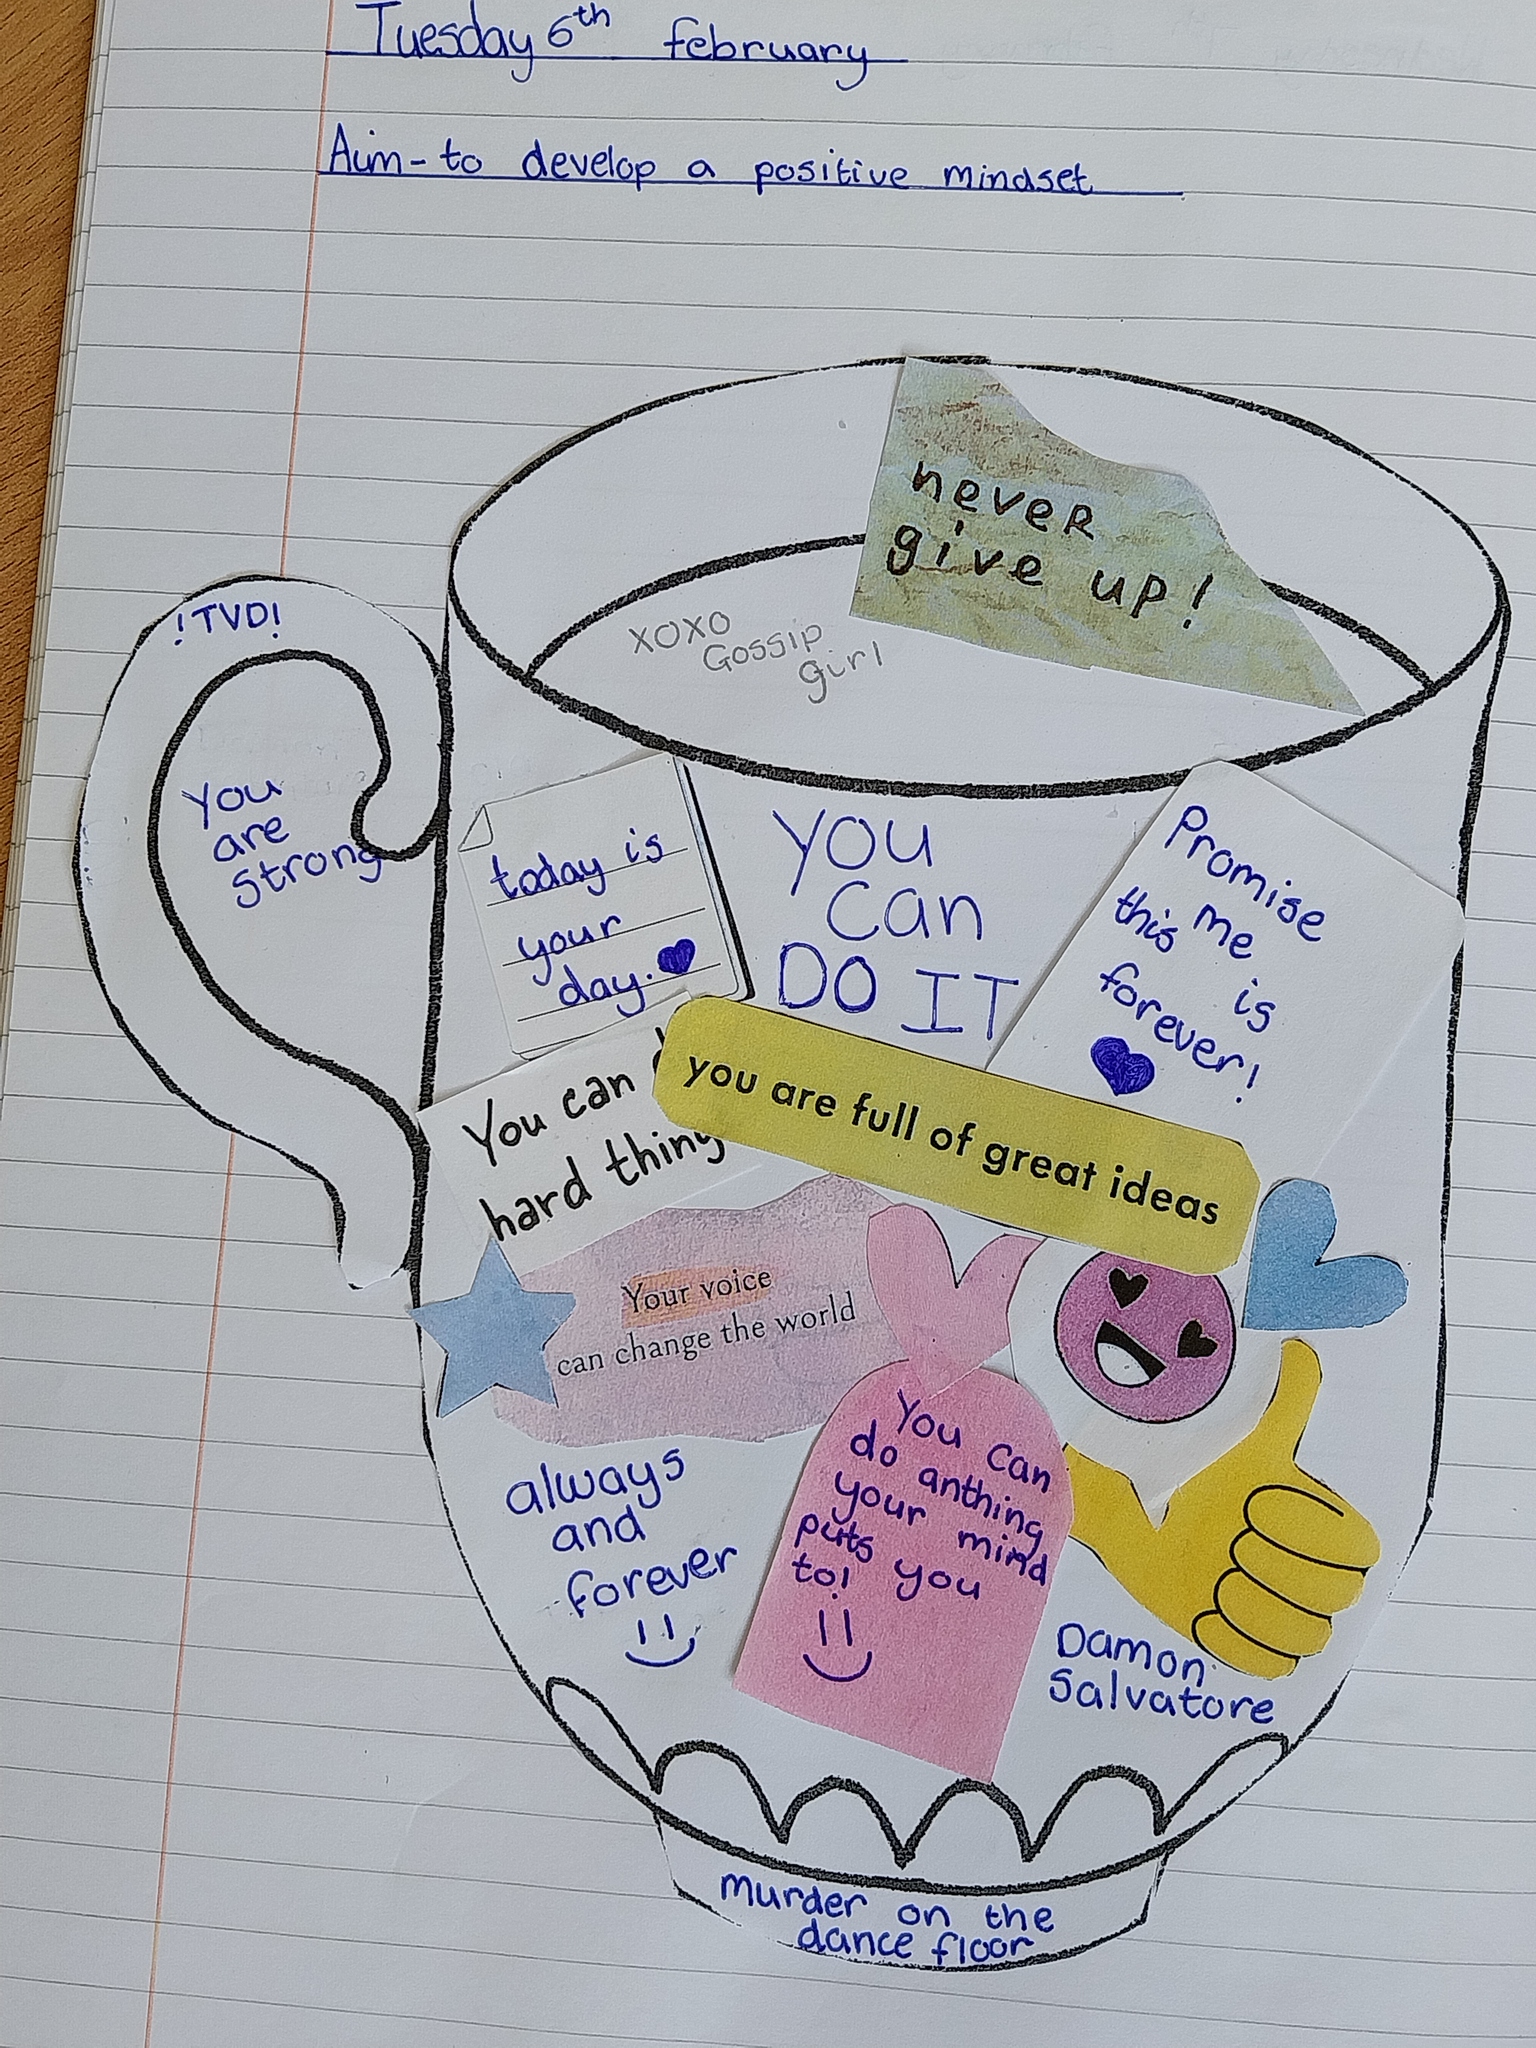 Tuesday 6th february
Aim - to develop a positive mindset
never
give up!
XOXO
Gossip
girl
!TVD!
You
are
strong
today is
your
day.
YOU
can
DO IT
Promise
me
this is
forever!
You can
hard thing
you are full of great ideas
Your voice
can change the world
always
and
forever
You can
do anthing
your mind
puts you
to!
Damon
Salvatore
murder on the
dance floor